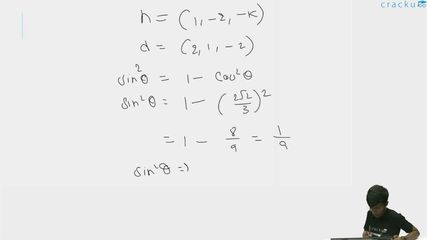 cracku
n = (1, -2, -k)
d = (2, 1, -2)
sin²θ = 1 - cos²θ
sin²θ = 1 - (2√2/3)²
= 1 - 8/9 = 1/9
sin²θ =)